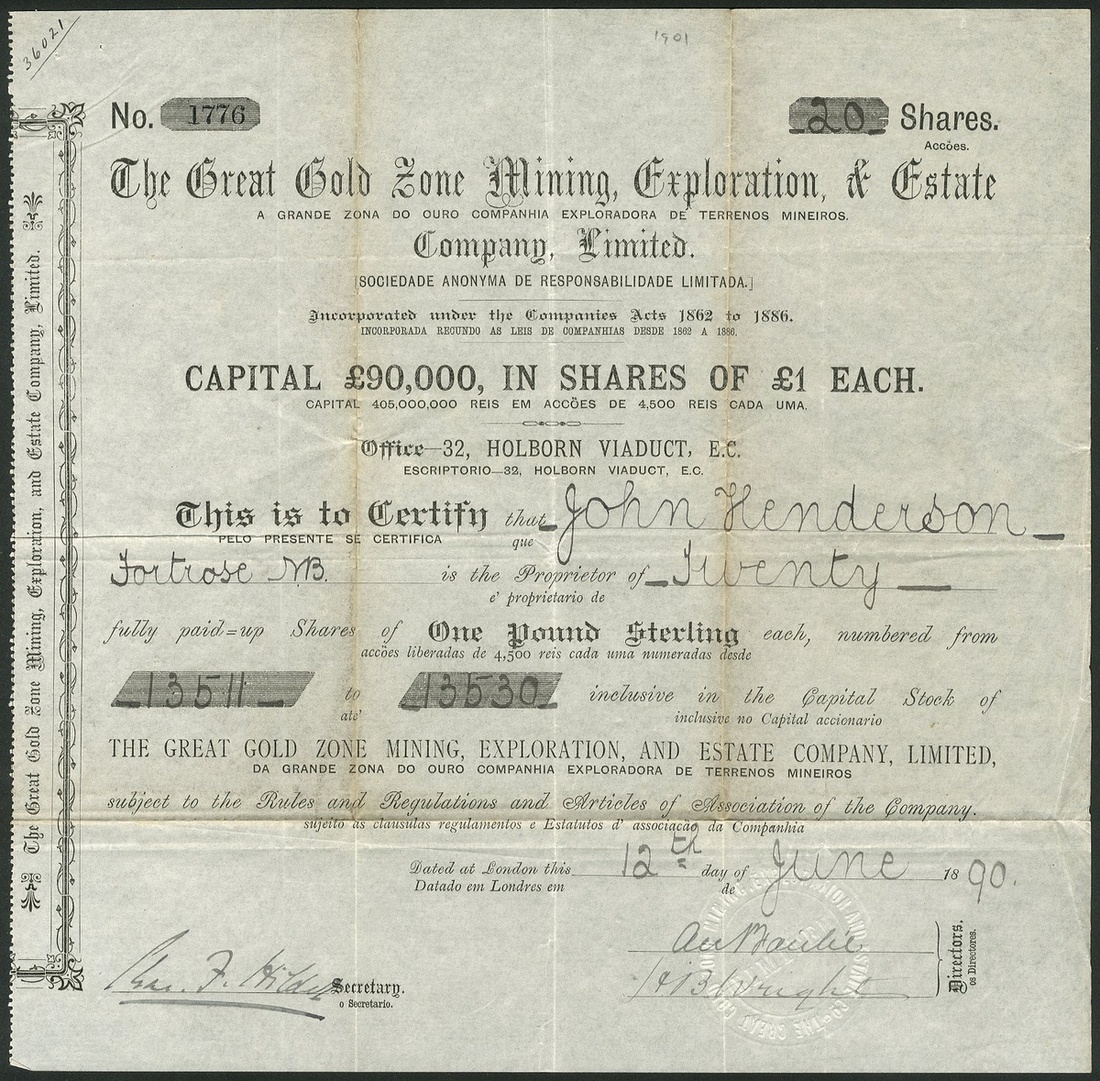 36021
1901
No. 1776
20 Shares.
Accões.
The Great Gold Zone Mining, Exploration, & Estate
A GRANDE ZONA DO OURO COMPANHIA EXPLORADORA DE TERRENOS MINEIROS.
Company, Limited.
[SOCIEDADE ANONYMA DE RESPONSABILIDADE LIMITADA.]
Incorporated under the Companies Acts 1862 to 1886.
INCORPORADA RECUNDO AS LEIS DE COMPANHIAS DESDE 1862 A 1886.
CAPITAL £90,000, IN SHARES OF £1 EACH.
CAPITAL 405,000,000 REIS EM ACCÕES DE 4,500 REIS CADA UMA.
Office—32, HOLBORN VIADUCT, E.C.
ESCRIPTORIO—32, HOLBORN VIADUCT, E.C.
This is to Certify that John Henderson
PELO PRESENTE SE CERTIFICA que
Fortrose N.B. is the Proprietor of Twenty
e' proprietario de
fully paid=up Shares of One Pound Sterling each, numbered from
accões liberadas de 4,500 reis cada uma numeradas desde
13511 to 13530 inclusive in the Capital Stock of
ate' inclusive no Capital accionario
THE GREAT GOLD ZONE MINING, EXPLORATION, AND ESTATE COMPANY, LIMITED,
DA GRANDE ZONA DO OURO COMPANHIA EXPLORADORA DE TERRENOS MINEIROS
subject to the Rules and Regulations and Articles of Association of the Company.
sujeito as clausulas regulamentos e Estatutos d' associacão da Companhia
Dated at London this 12th day of June 1890.
Datado em Londres em de
Directors.
os Directores.
H B Wright
Secretary.
o Secretario.
The Great Gold Zone Mining, Exploraion, and Estate Company, Limited.